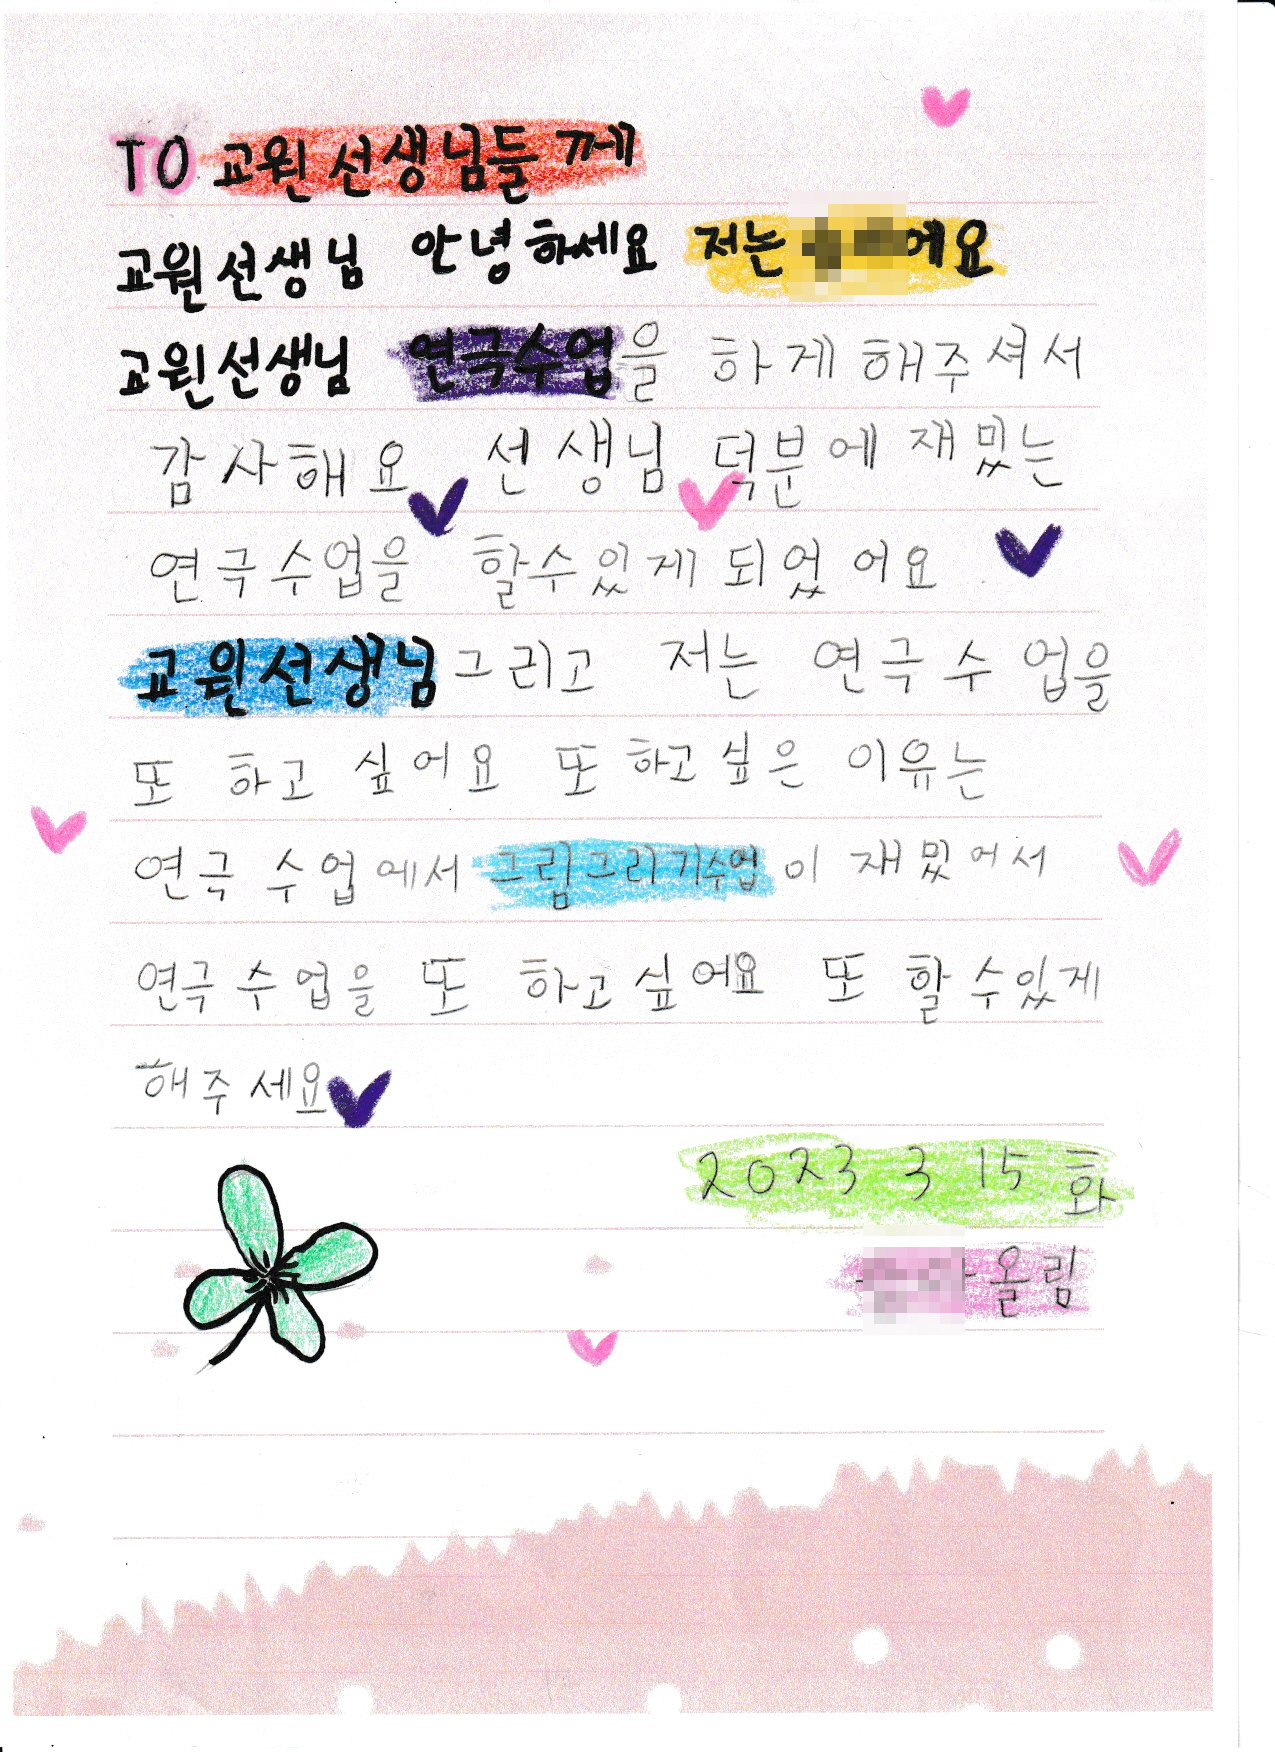 TO 교원선생님들께
교원선생님 안녕하세요 저는 에요
교원선생님 연극수업을 하게해주셔서
감사해요 선생님 덕분에 재밌는
연극수업을 할수있게 되었어요
교원선생님 그리고 저는 연극수업을
또 하고 싶어요 또 하고싶은 이유는
연극 수업에서 그림그리기수업이 재밌어서
연극수업을 또 하고싶어요 또 할수있게
해주세요
2023 3 15 화
올림